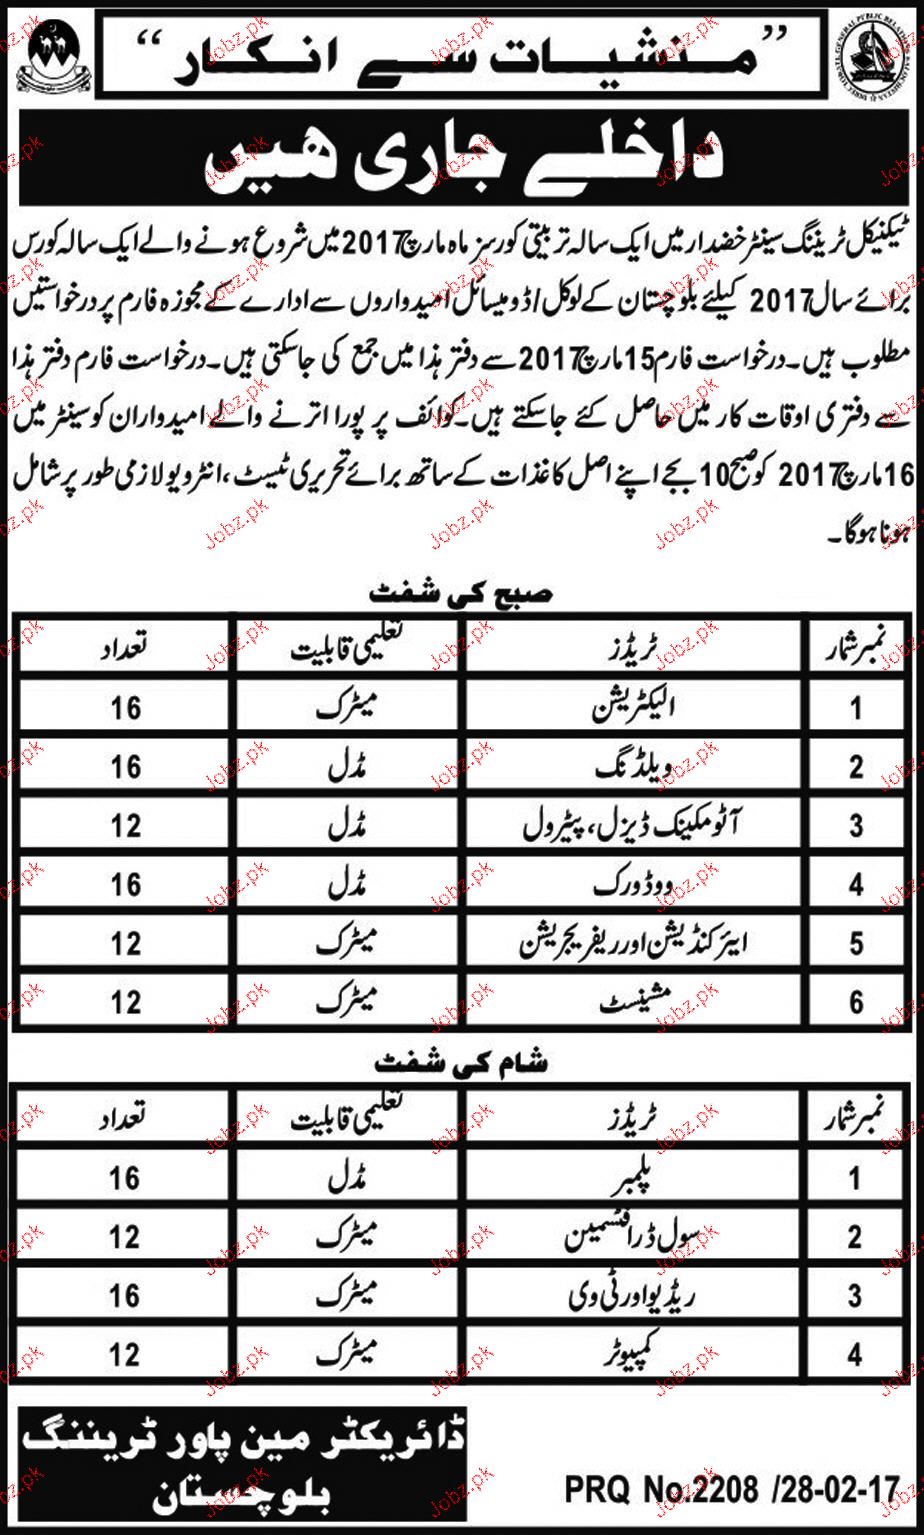 ”منشیات سے انکار“
داخلے جاری ھیں
ٹیکنیکل ٹریننگ سینٹر خضدار میں ایک سالہ تربیتی کورسز ماہ مارچ 2017 میں شروع ہونے والے ایک سالہ کورس
برائے سال 2017 کیلئے بلوچستان کے لوکل/ڈومیسائل امیدواروں سے ادارے کے مجوزہ فارم پر درخواستیں
مطلوب ہیں۔ درخواست فارم 15 مارچ 2017 سے دفتر ہذا میں جمع کی جاسکتی ہیں۔ درخواست فارم دفتر ہذا
سے دفتری اوقات کار میں حاصل کئے جاسکتے ہیں۔ کوائف پر پورا اترنے والے امیدواران کو سینٹر میں
16 مارچ 2017 کو صبح 10 بجے اپنے اصل کاغذات کے ساتھ برائے تحریری ٹیسٹ، انٹرویو لازمی طور پر شامل
ہونا ہوگا۔
صبح کی شفٹ
نمبر شمار ٹریڈز تعلیمی قابلیت تعداد
1 الیکٹریشن میٹرک 16
2 ویلڈنگ مڈل 16
3 آٹو مکینک ڈیزل، پیٹرول مڈل 12
4 ووڈ ورک مڈل 16
5 ایئر کنڈیشن اور ریفریجریشن میٹرک 12
6 مشینسٹ میٹرک 12
شام کی شفٹ
نمبر شمار ٹریڈز تعلیمی قابلیت تعداد
1 پلمبر مڈل 16
2 سول ڈرافٹسمین میٹرک 12
3 ریڈیو اور ٹی وی میٹرک 16
4 کمپیوٹر میٹرک 12
ڈائریکٹر مین پاور ٹریننگ
بلوچستان
PRQ No.2208 /28-02-17
Jobz.pk